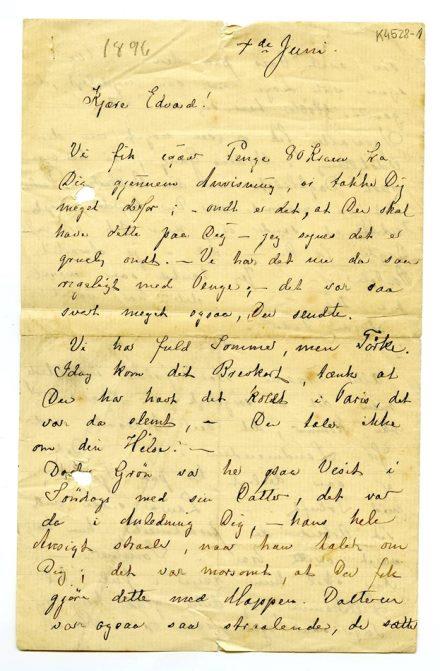 1896
K4528-1
4de Juni.
Kjære Edvard!
Vi fik igaar Penge 80 Kroner fra
Dig gjennem Anvisning, vi takke Dig
meget derfor; – ondt er det, at Du skal
have dette paa Dig – jeg synes det er
gruelig ondt. – Vi har det nu da saa
rigeligt med Penge, – det var saa
svert meget ogsaa, Du sendte.
Vi har fuld Sommer, men Törke.
Idag kom dit Brevkort, tænk at
Du har havt det koldt i Paris, det
var da slemt, – Du taler ikke
om din Helse! –
Grön var her paa Visit i
Søndags med sin Datter, det var
da i Anledning Dig, – hans hele
Ansigt straaler, naar han taler om
Dig; det var morsomt, at Du fik
gjöre dette med Mappen. Datteren
var ogsaa saa straalende, de sætte